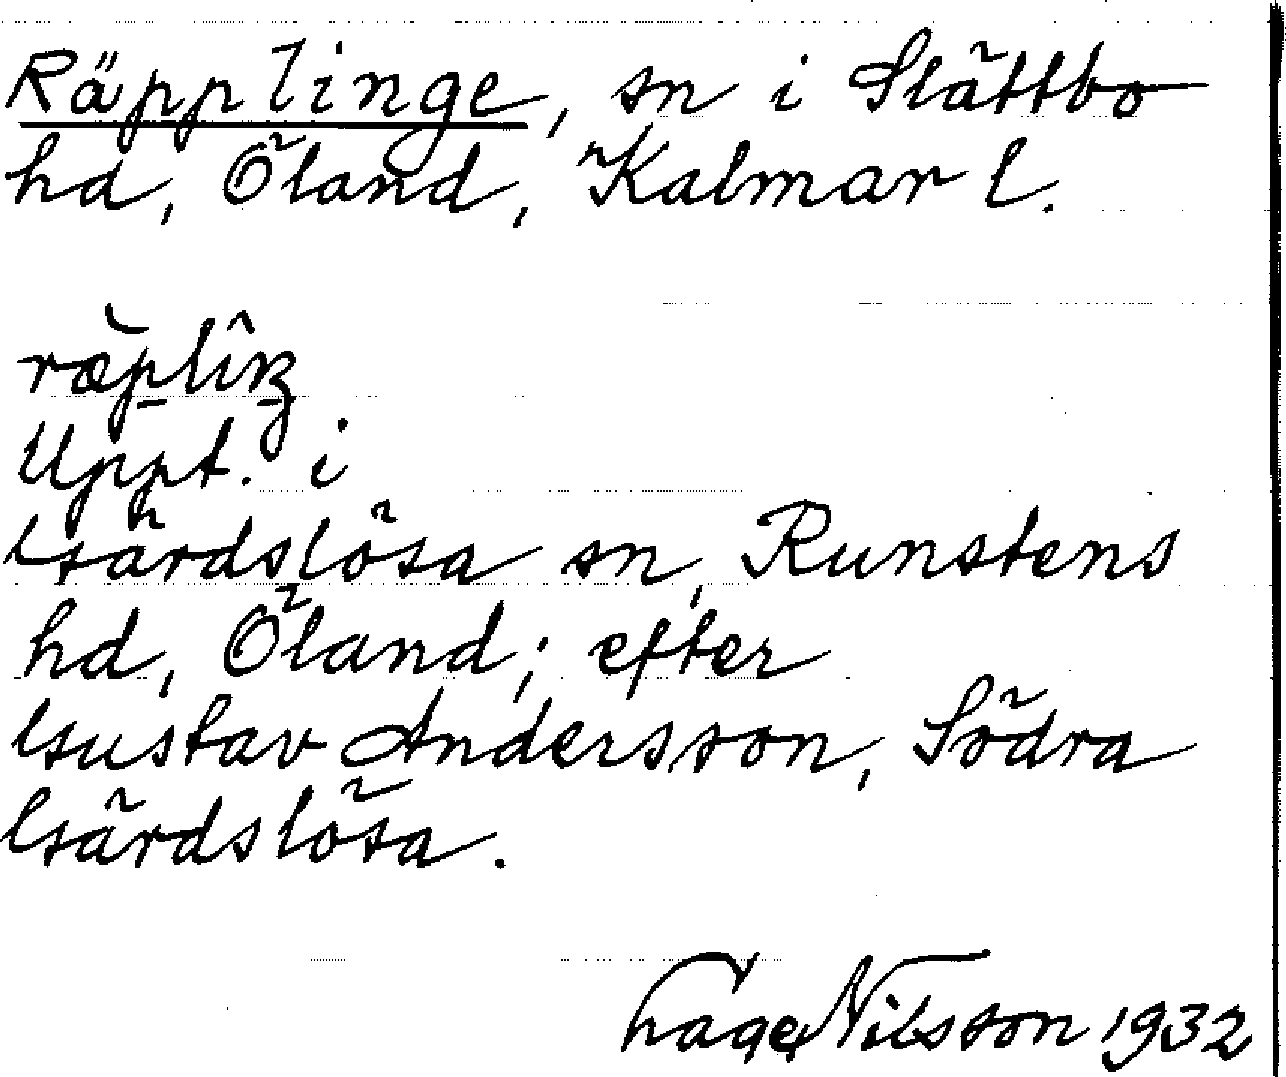 Räpplinge, sn i Slättbo
hd, Öland, Kalmar l.
Uppt. i
Gärdslösa sn, Runstens
hd, Öland; efter
Gustav Andersson, Södra
Gärdslösa.
Tage Nilsson 1932